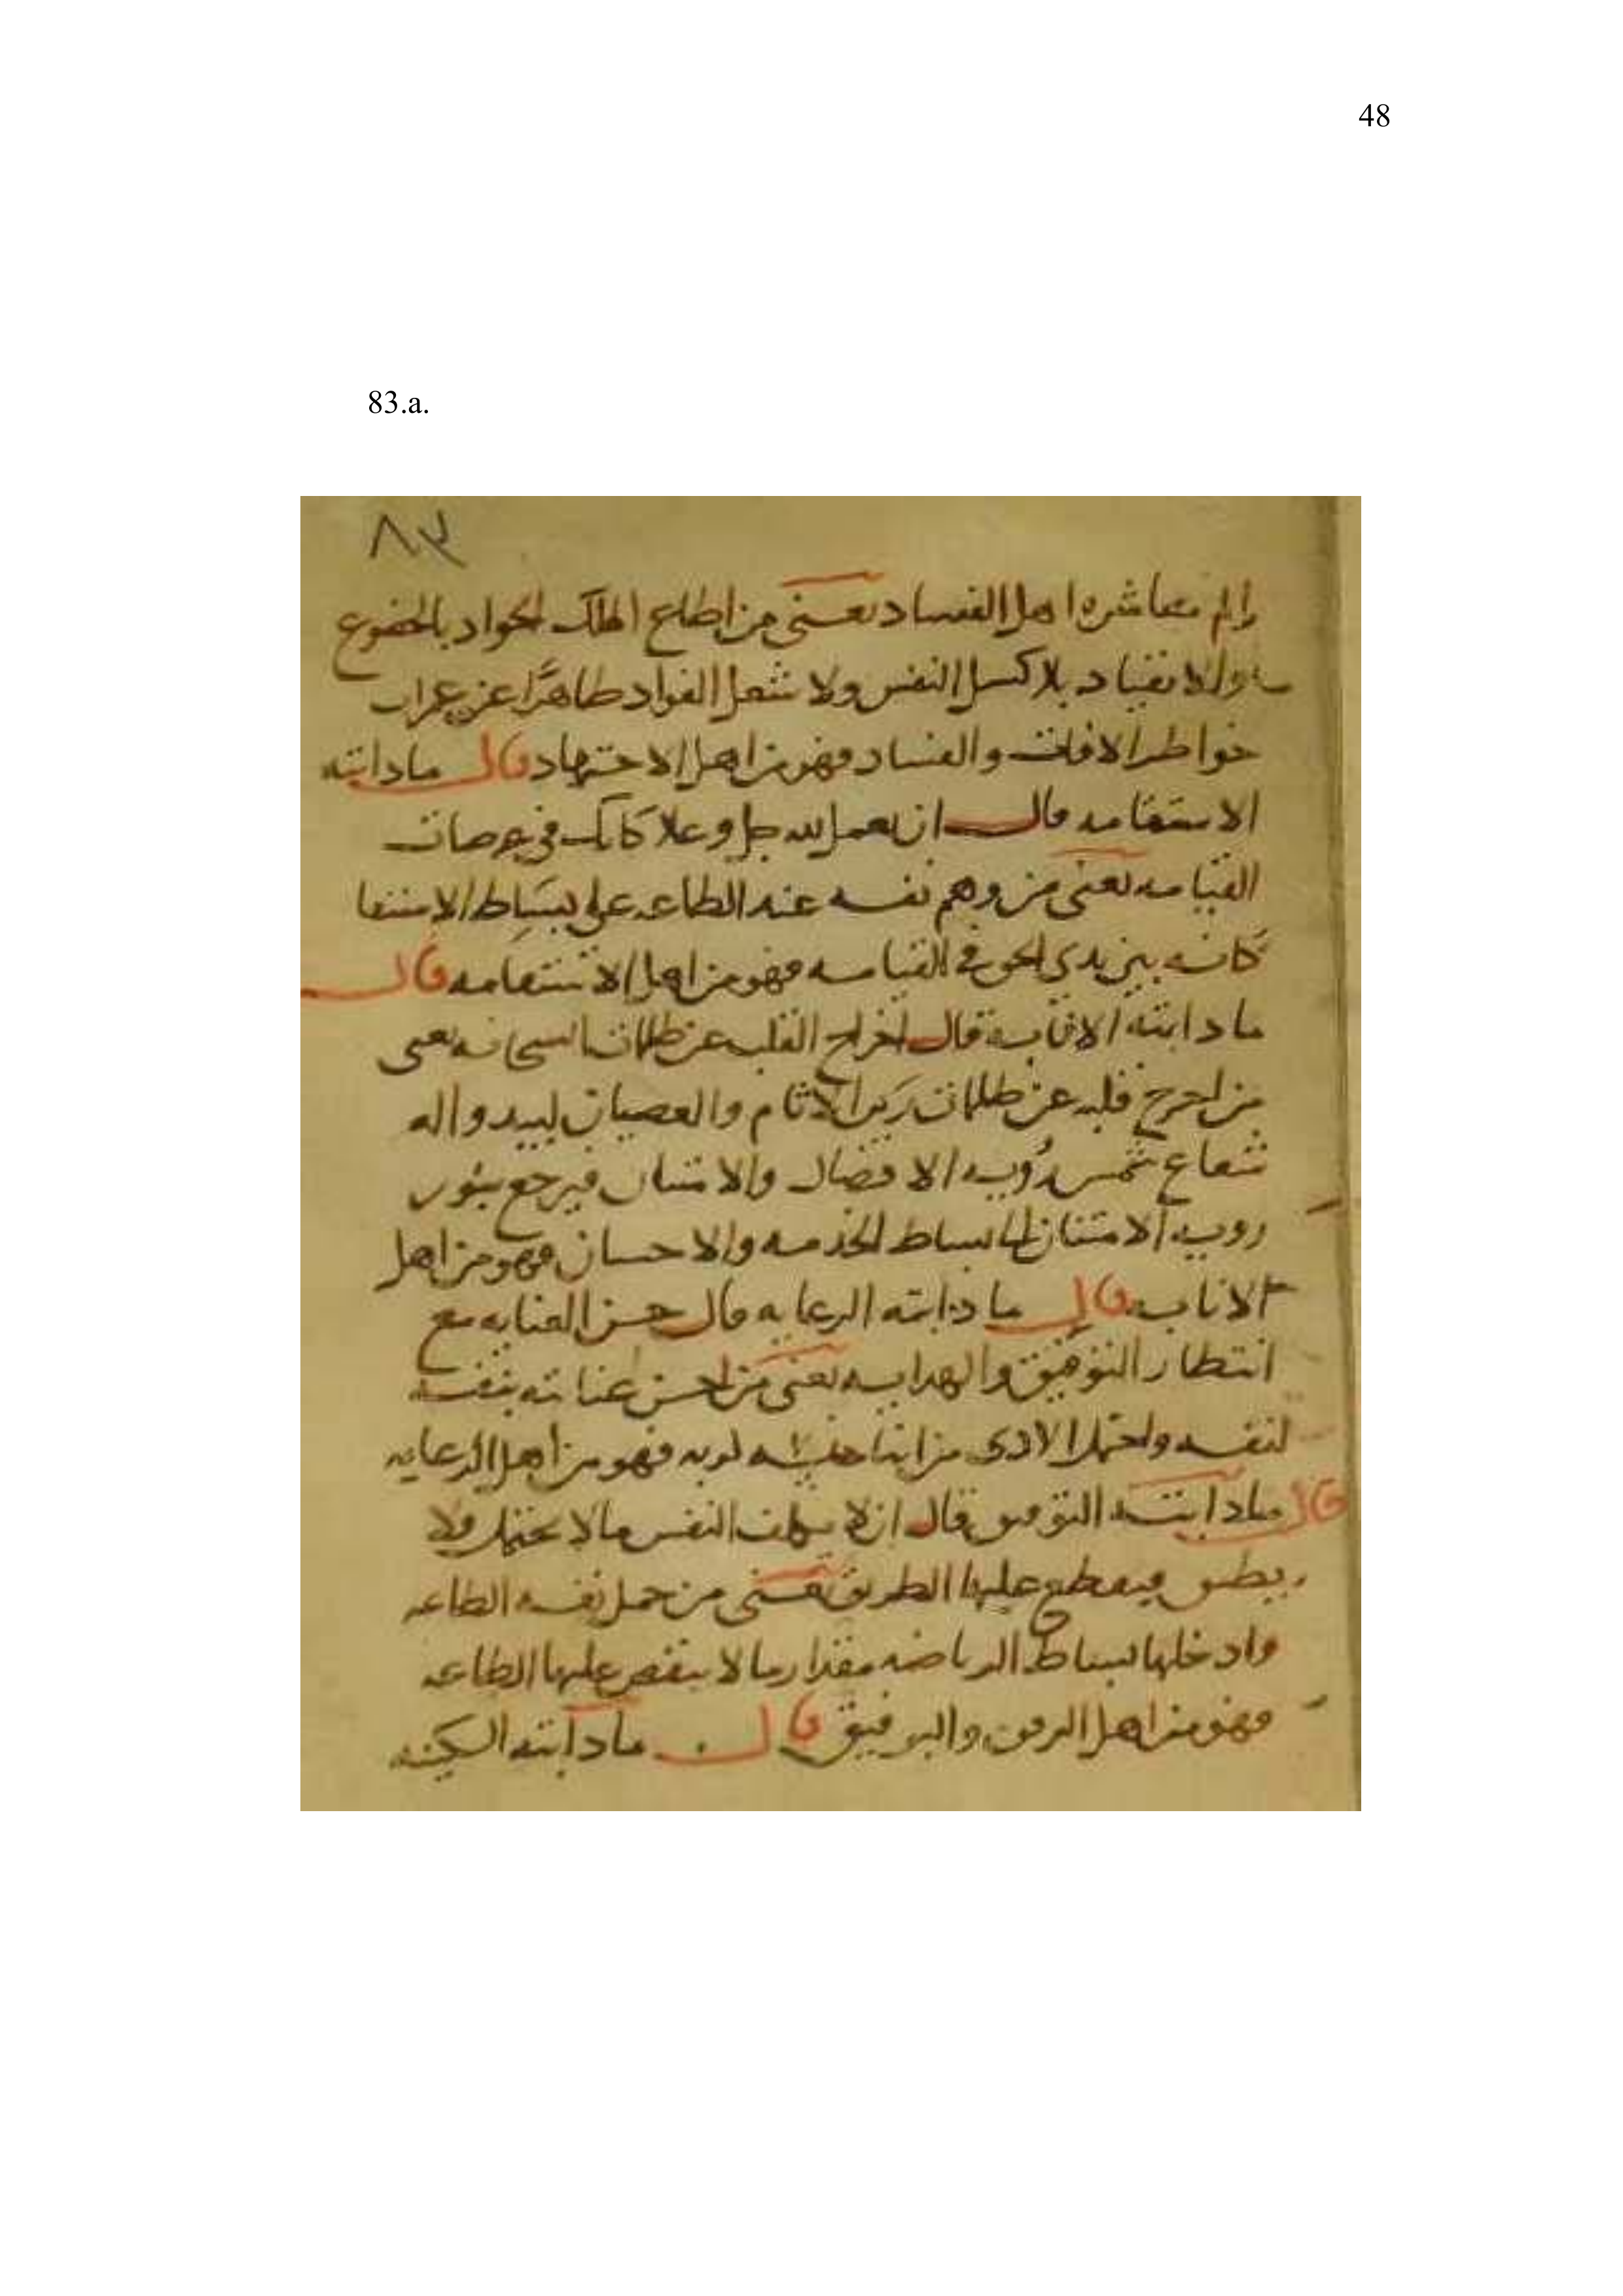 48
83.a.
٨٣
معاشره اهل الفساد يعنى من اطاع الملك الجواد بالخضوع
والانقياد بلا كسل النفس ولا شغل الفواد طاهرًا عن
خواطر الافات والفساد فهو من اهل الاجتهاد قال ماداىته
الاستقامه قال ان يعمل لله جل وعلا كانك في عرصات
القيامه يعنى من وهم نفسه عند الطاعه على بسَاط الاستقا
كانه بين يدى الحق في القيامه فهو من اهل الاستقامه قال
ماداىته الانابة قال اخراج القلب عن ظلمات يعنى
من اخرج قلبه عن ظلمات الاثام والعصيان
شعاع شمس رُويه الافضال والامتنان فيرجع بنور
رويه الامتنان الى بساط الخدمه والاحسان فهو من اهل
الانابه قال ماداىته الرعايه قال حسن العنايه مع
انتظار التوفيق والهدايه يعنى من احسن عنايته بنفسه
لنفسه واحتمل الاذى من ابنا فهو من اهل الرعايه
قال ماداىته التوفىق قال ان لا يكلف النفس مالا يحتمل ولا
يطىق فيقطع عليها الطريق يعنى من حمل نفسه الطاعه
وادخلها بساط الرياضه مقدار ما لا ينقص عليها الطاعه
فهو من اهل الرفق والتوفيق قال ماداىته السكينه